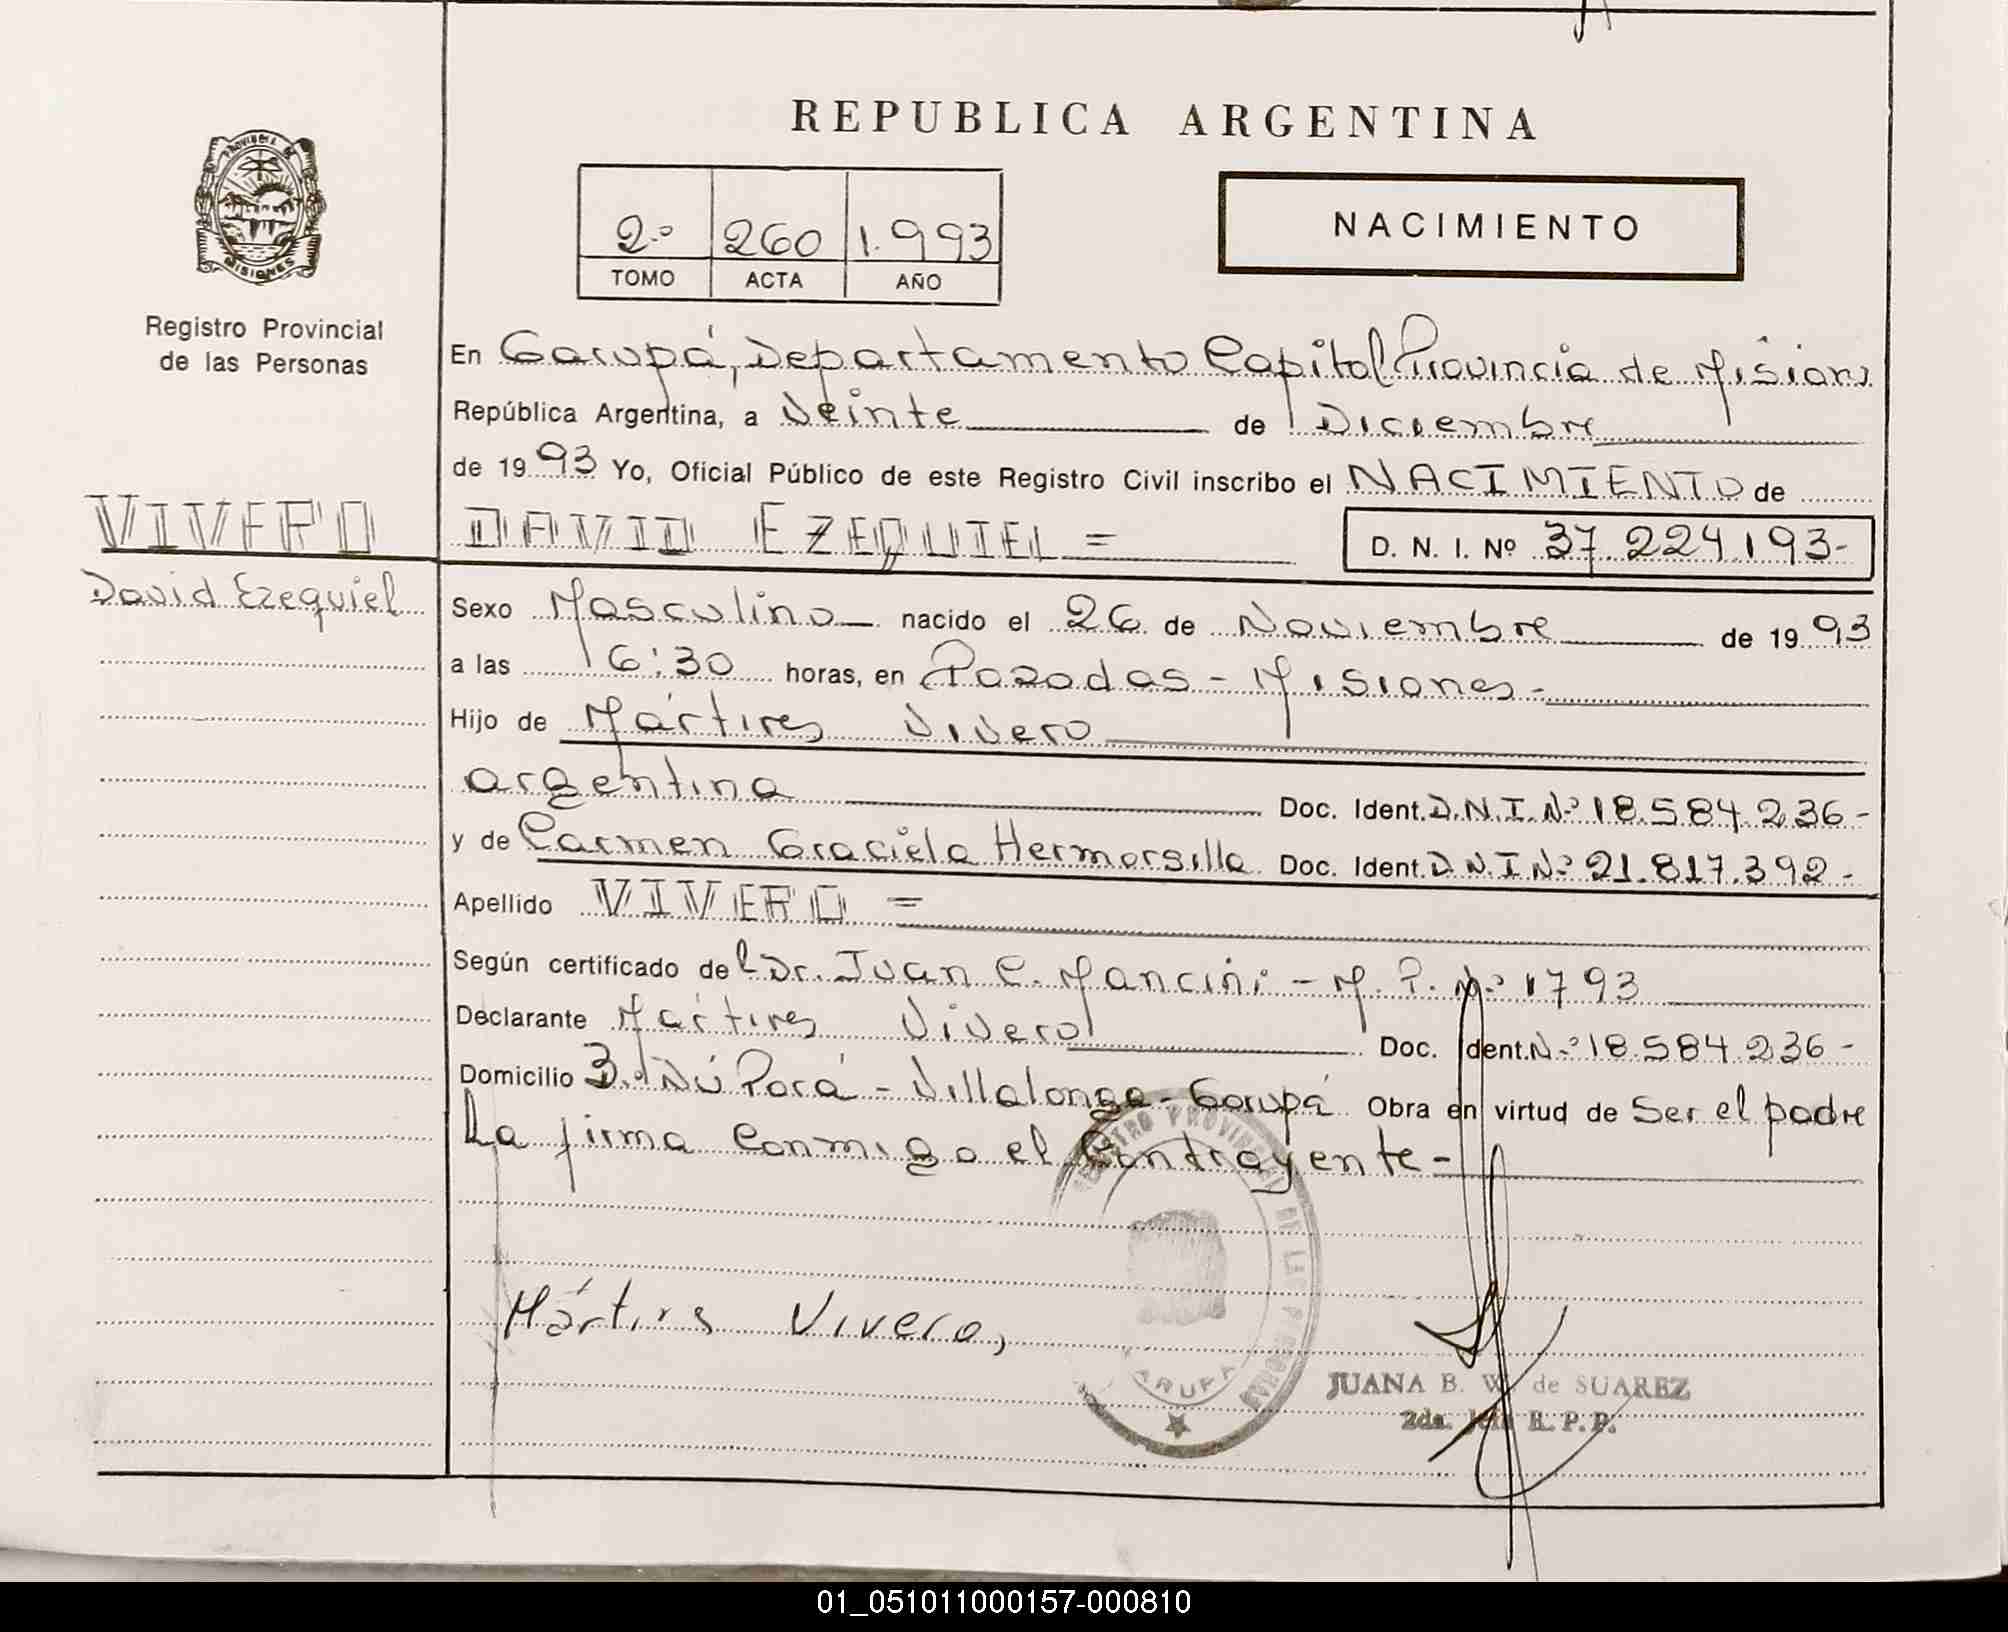 REPUBLICA ARGENTINA
PROVINCIA DE
MISIONES
Registro Provincial
de las Personas
2º 260 1.993
TOMO ACTA AÑO
NACIMIENTO
En Garupá, Departamento Capital Provincia de Misiones
República Argentina, a Veinte de Diciembre
de 1993 Yo, Oficial Público de este Registro Civil inscribo el NACIMIENTO de
VIVERO
David Ezequiel
DAVID EZEQUIEL = D. N. I. Nº 37.224.193-
Sexo Masculino nacido el 26 de Noviembre de 1993
a las 16:30 horas, en Posadas - Misiones-
Hijo de Mártires Vivero
argentina Doc. Ident. D.N.I.Nº 18.584.236-
y de Carmen Graciela Hermosilla Doc. Ident. D.N.I Nº 21.817.392-
Apellido VIVERO =
Según certificado del Dr. Juan C. Mancini - M.P. Nº 1793
Declarante Mártires Vivero Doc. Ident. Nº 18.584.236-
Domicilio B. Ñú Porá - Villalonga - Garupá Obra en virtud de Ser el padre
La firma conmigo el Contrayente-
Mártires Vivero,
REGISTRO PROVINCIAL DE LAS PERSONAS
GARUPA
JUANA B. W. de SUAREZ
2da. Jefe R. P. P.
01_051011000157-000810